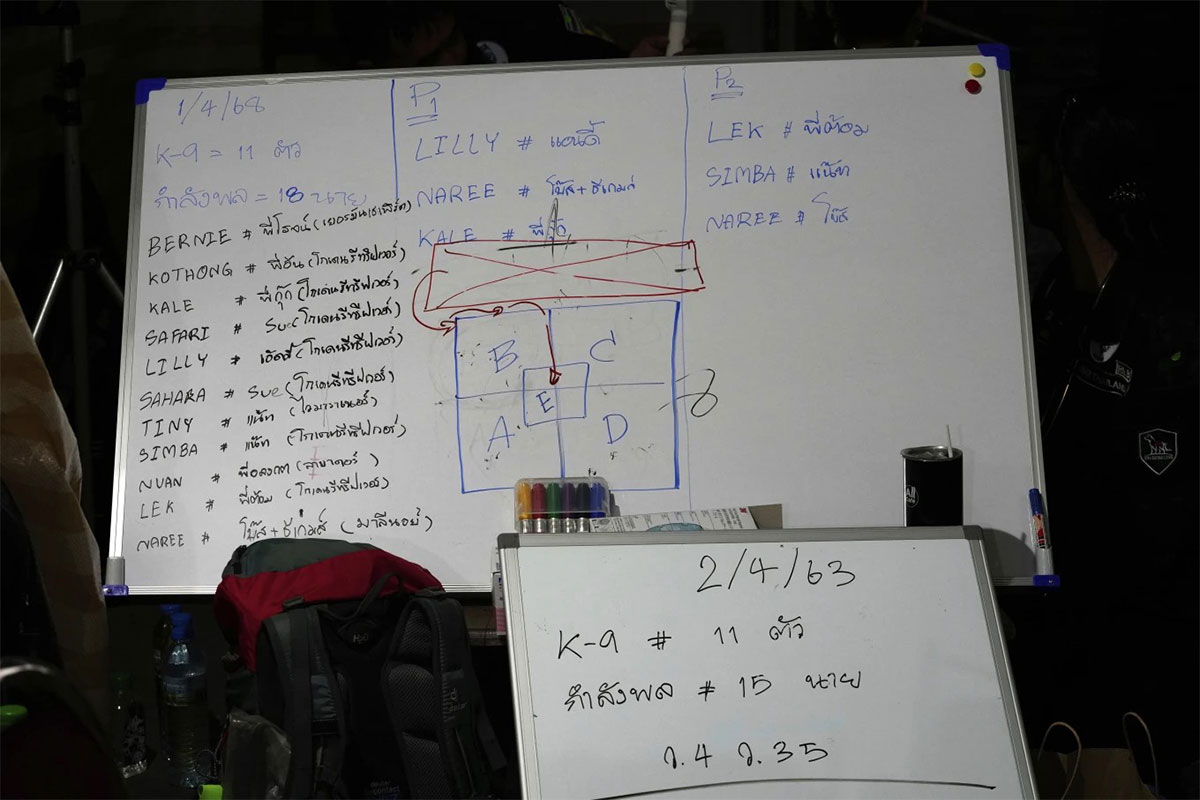 1/4/68
K-9 = 11 ตัว
กำลังพล = 18 นาย
BERNIE # พี่โรจน์ (เยอรมันเชพเพิร์ด)
KOTHONG # (โกเดนรีทรีฟเวอร์)
KALE # พี่กุ๊ก (โกเด่นรีทรีฟเวอร์)
SAFARI # Sue (โกเดนรีทรีฟเวอร์)
LILLY # (โกเดนรีทรีฟเวอร์)
SAHARA # Sue (โกเดนรีทรีฟเวอร์)
TINY # แน๊ท (ไวมาราเนอร์)
SIMBA # แน๊ท (โกเดนรีทรีฟเวอร์)
NUAN # (ลาบาดอร์)
LEK # พี่ต้อม (โกเดนรีทรีฟเวอร์)
NAREE # โบ๊ส + ธีเกมส์ (มาลีนอย์)
P1
LILLY # แอนดี้
NAREE # โบ๊ส + ธีเกมส์
KALE # พี่กุ๊ก
B
C
E
A
D
P2
LEK # พี่ต้อม
SIMBA # แน๊ท
NAREE # โบ๊ส
2/4/63
K-9 # 11 ตัว
กำลังพล # 15 นาย
ว.4 ว.35